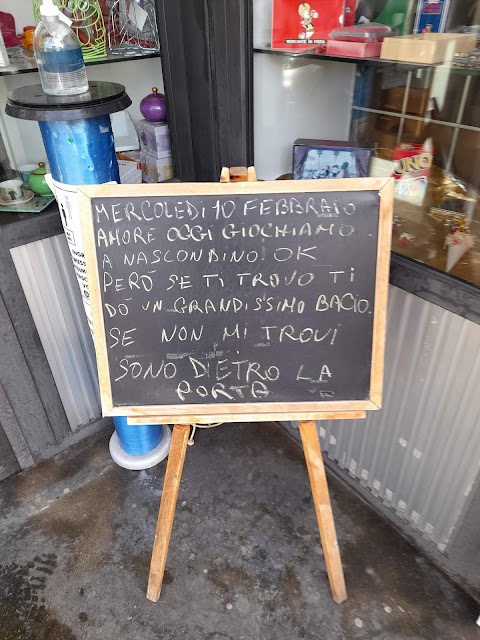 MERCOLEDI 10 FEBBRAIO
AMORE OGGI GIOCHIAMO
A NASCONDINO! OK
PERÒ SE TI TROVO TI
DÒ UN GRANDISSIMO BACIO.
SE NON MI TROVI
SONO DIETRO LA
PORTA
UNO